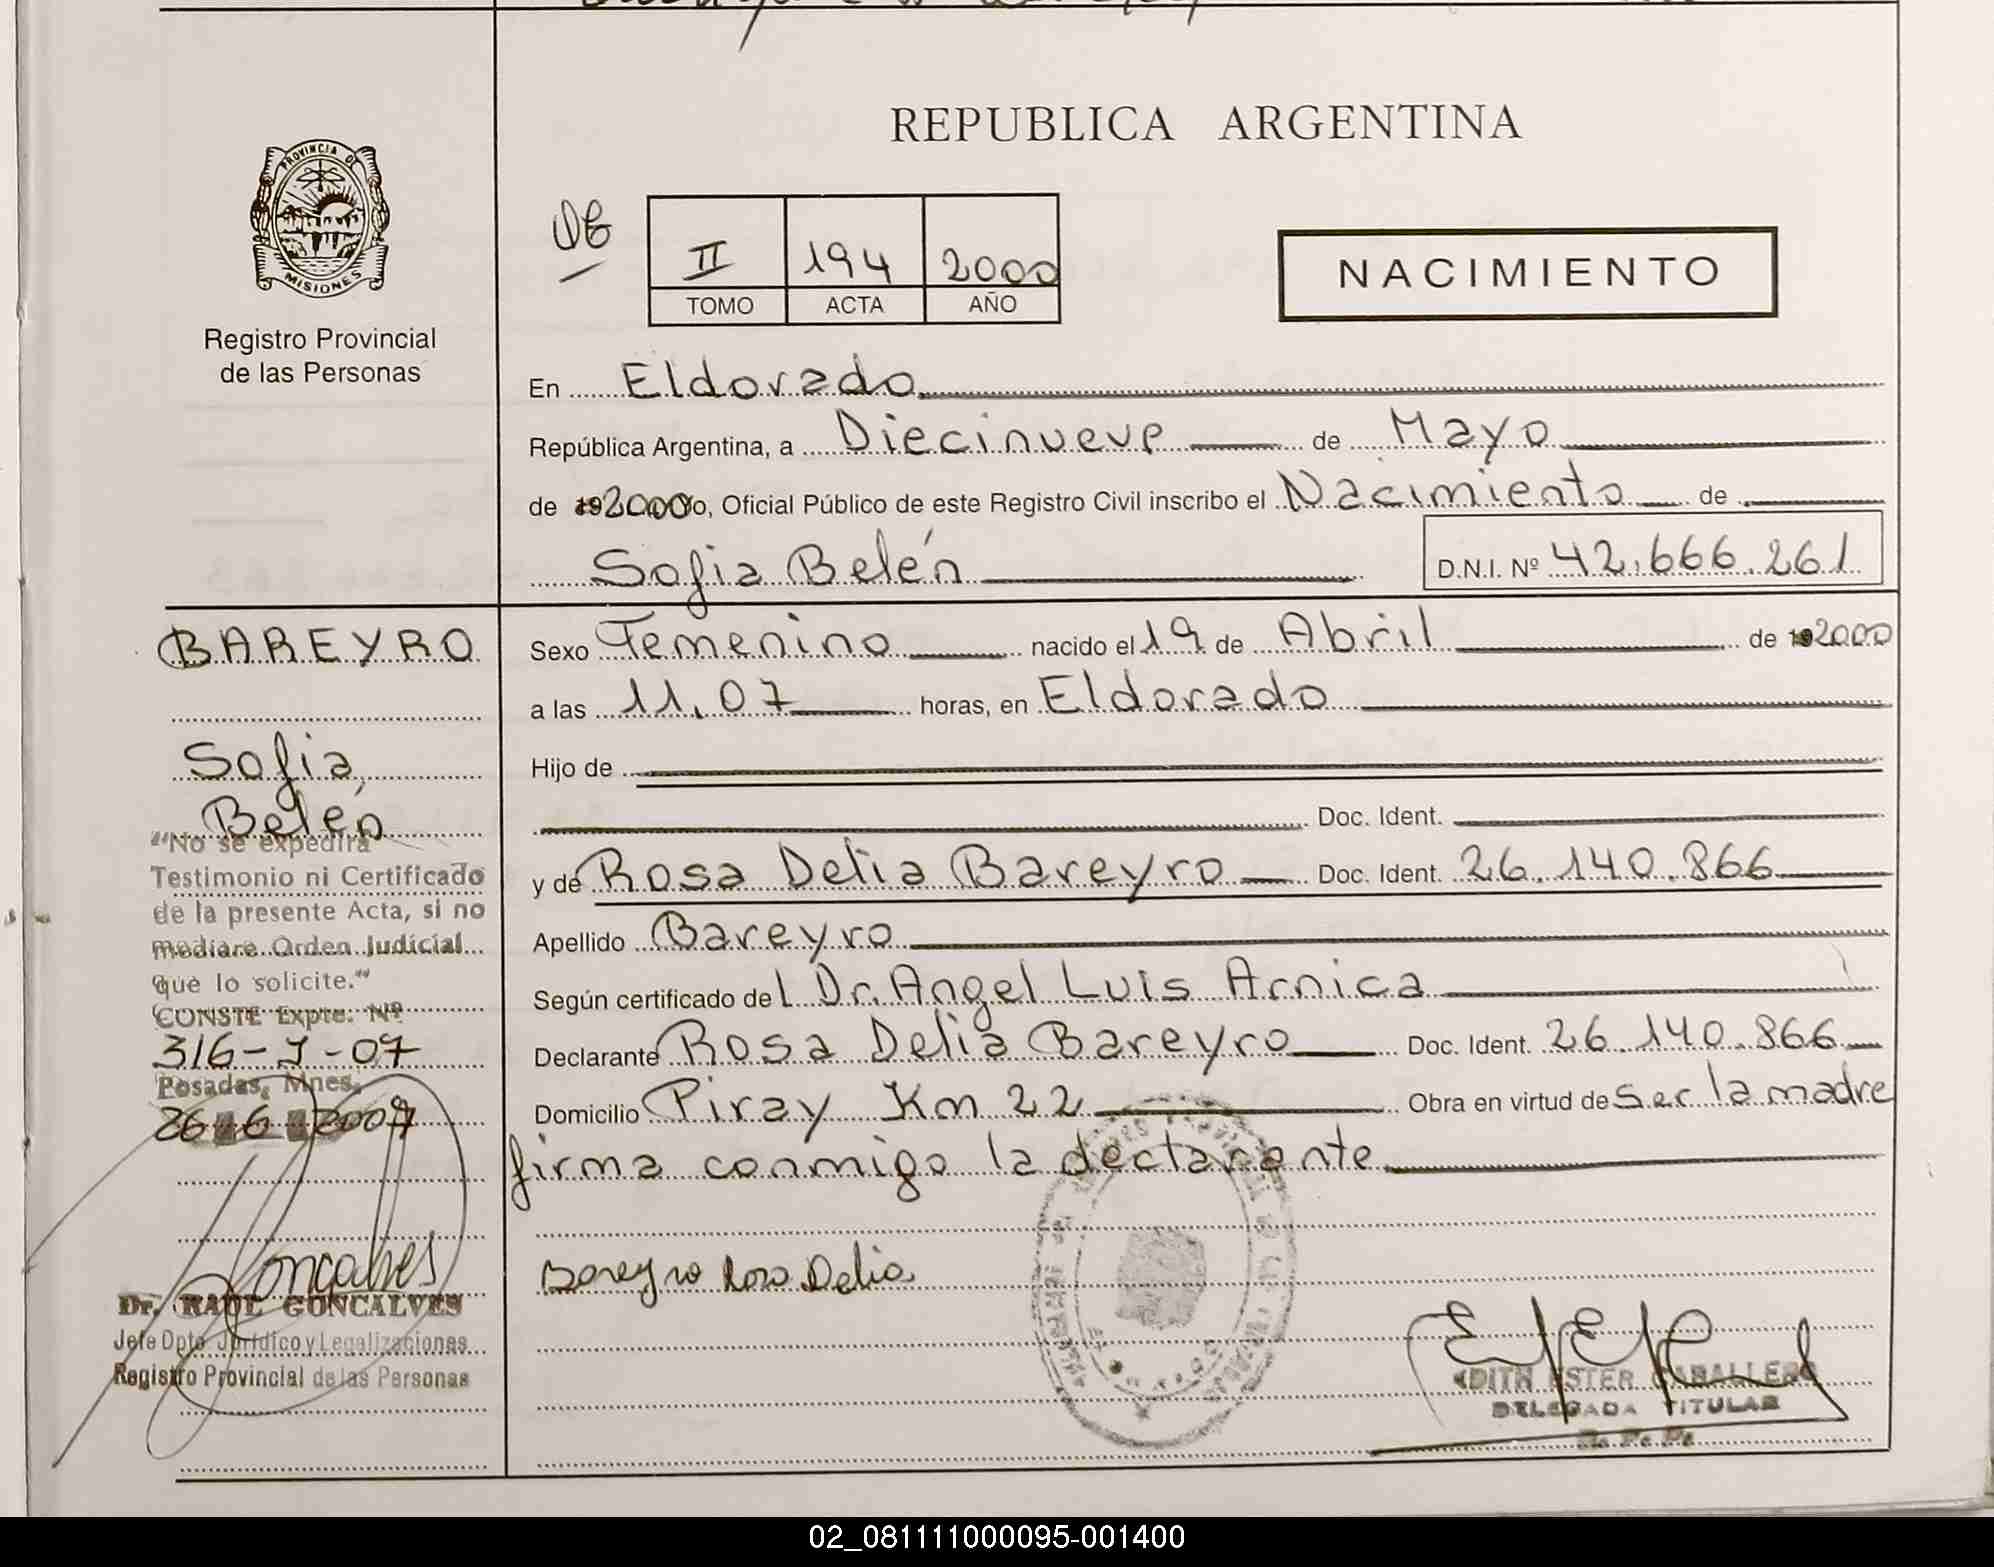 REPUBLICA ARGENTINA
PROVINCIA DE
MISIONES
Registro Provincial
de las Personas
II 194 2000
TOMO ACTA AÑO
NACIMIENTO
En Eldorado
República Argentina, a Diecinueve de Mayo
de 192000 yo, Oficial Público de este Registro Civil inscribo el Nacimiento de
Sofia Belén D.N.I. Nº 42.666.261
BAREYRO
Sofia
Belén
"No se expedirá
Testimonio ni Certificado
de la presente Acta, si no
mediare Orden Judicial
que lo solicite."
CONSTE Expte. Nº
316-J-07
Posadas, Mnes.
26 6 2007
Goncalves
Dr. RAUL GONCALVES
Jefe Dpto. Jurídico y Legalizaciones
Registro Provincial de las Personas
Sexo Femenino nacido el 19 de Abril de 192000
a las 11.07 horas, en Eldorado
Hijo de
Doc. Ident.
y de Rosa Delia Bareyro Doc. Ident. 26.140.866
Apellido Bareyro
Según certificado del Dr. Angel Luis Arnica
Declarante Rosa Delia Bareyro Doc. Ident. 26.140.866
Domicilio Piray Km 22 Obra en virtud de Ser la madre
firma conmigo la declarante
Bareyro Rosa Delia
EDITH ESTER CABALLERO
DELEGADA TITULAR
R. P. P.
02_081111000095-001400